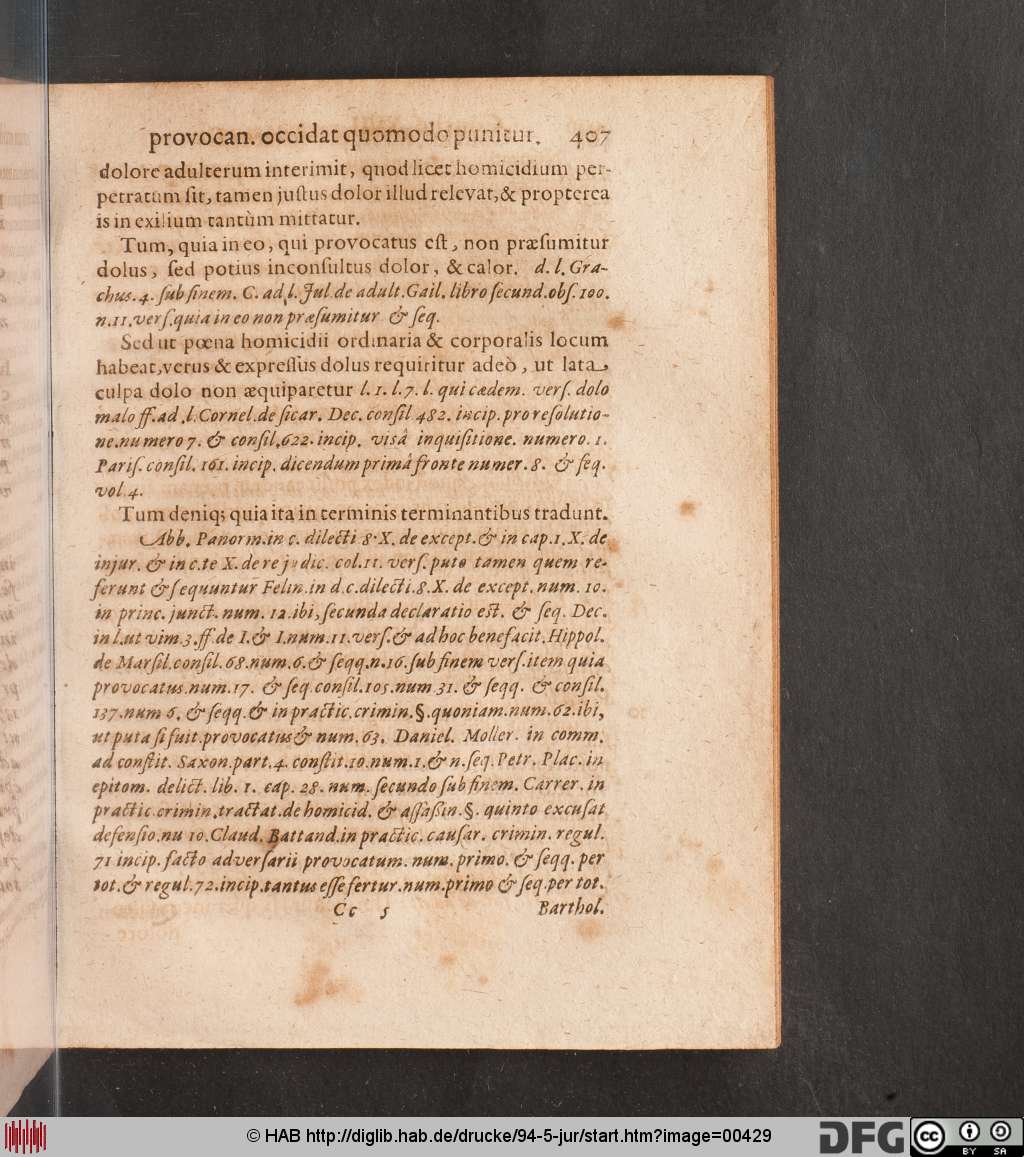 provocan. occidat quomodo punitur. 407
dolore adulterum interimit, quod licet homicidium per-
petratum sit, tamen justus dolor illud relevat, & propterea
is in exilium tantùm mittatur.
Tum, quia in eo, qui provocatus est, non præsumitur
dolus, sed potius inconsultus dolor, & calor. d. l. Gra-
chus. 4. sub finem. C. ad l. Jul. de adult. Gail. libro secund. obs. 100.
n. 11. vers. quia in eo non præsumitur & seq.
Sed ut pœna homicidii ordinaria & corporalis locum
habeat, verus & expressus dolus requiritur adeò, ut lata
culpa dolo non æquiparetur l. 1. l. 7. l. qui cædem. vers. dolo
malo ff. ad .l. Cornel. de sicar. Dec. consil 482. incip. pro resolutio-
ne. numero 7. & consil. 622. incip. visâ inquisitione. numero. 1.
Paris. consil. 161. incip. dicendum primâ fronte numer. 8. & seq.
vol. 4.
Tum deniq; quia ita in terminis terminantibus tradunt.
Abb. Panorm. in c. dilecti 8. X. de except. & in cap. 1. X. de
injur. & in c. te X. de re judic. col. 11. vers. puto tamen quem re-
ferunt & sequuntur Felin. in d. c. dilecti. 8. X. de except. num. 10.
in princ. junct. num. 12. ibi, secunda declaratio est. & seq. Dec.
in l. ut vim. 3. ff. de I. & I. num. 11. vers. & ad hoc benefacit. Hippol.
de Marsil. consil. 68. num. 6. & seqq. n. 16. sub finem vers. item quia
provocatus. num. 17. & seq. consil. 105. num 31. & seqq. & consil.
137. num 6. & seqq. & in practic. crimin. §. quoniam. num. 62. ibi,
ut puta si fuit. provocatus & num. 63. Daniel. Moller. in comm.
ad constit. Saxon. part. 4. constit. 10. num. 1. & n. seq. Petr. Plac. in
epitom. delict. lib. 1. cap. 28. num. secundo sub finem. Carrer. in
practic. crimin. tractat. de homicid. & assassin. §. quinto excusat
defensio. nu 10. Claud. Battand. in practic. causar. crimin. regul.
71 incip. facto adversarii provocatum. num. primo. & seqq. per
tot. & regul. 72. incip. tantus esse fertur. num. primo & seq. per tot.
Cc 5 Barthol.
© HAB http://diglib.hab.de/drucke/94-5-jur/start.htm?image=00429
DFG
cc BY SA